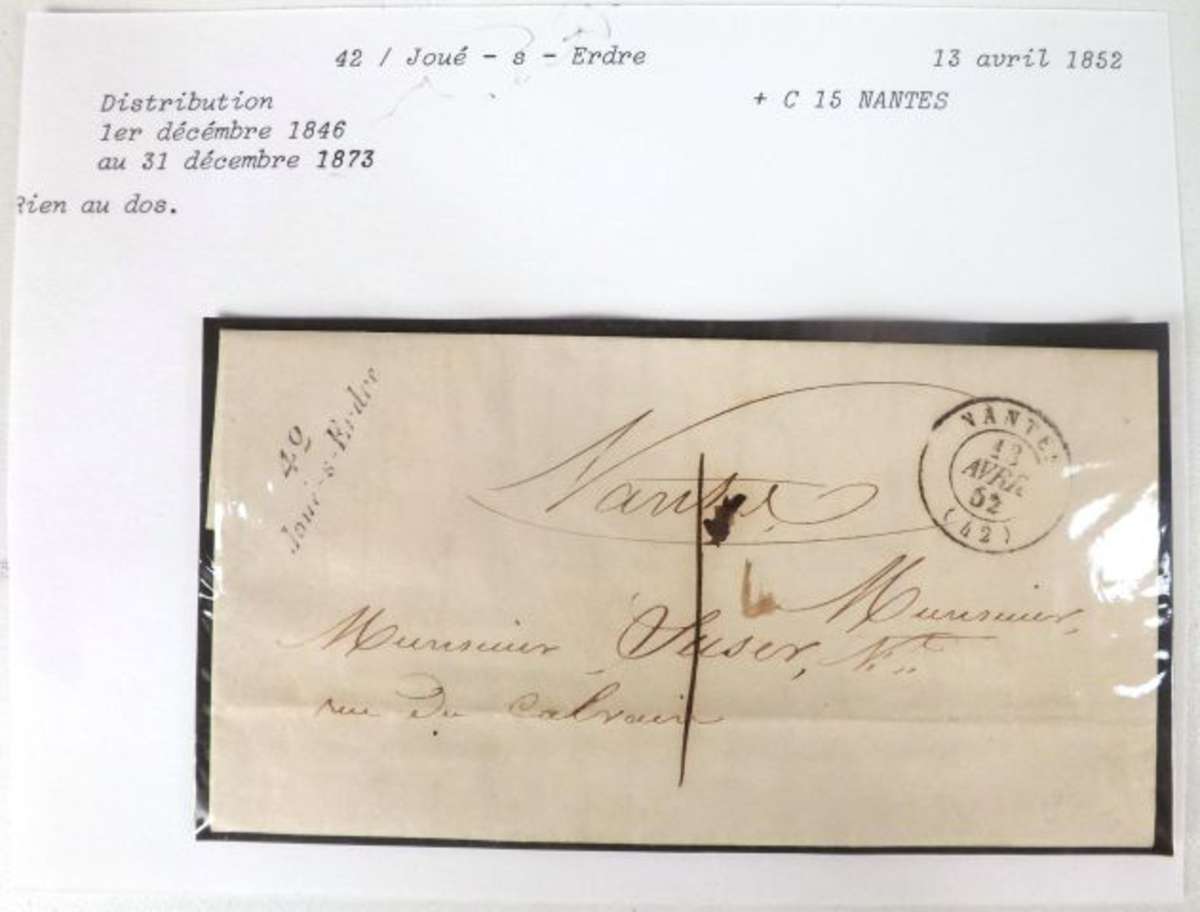 42 / Joué - s - Erdre
13 avril 1852
Distribution
+ C 15 NANTES
1er décémbre 1846
au 31 décembre 1873
Rien au dos.
42
Joué-s-Erdre
NANTES
13
AVRIL
52
(42)
Nantes,
Monsieur,
Monsieur
rue du Calvaire